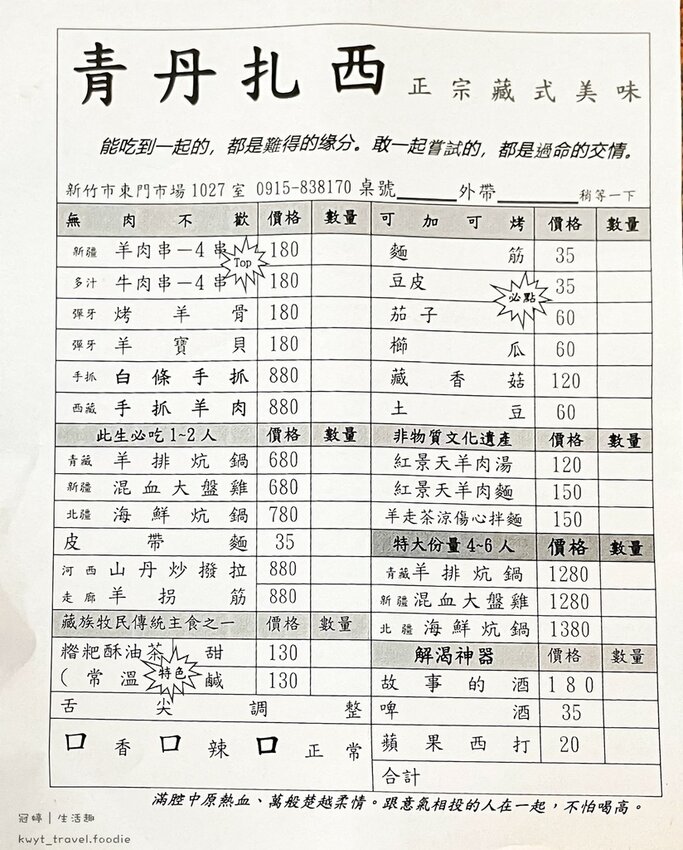 青丹扎西 正宗藏式美味
能吃到一起的，都是難得的缘分。敢一起嘗試的，都是過命的交情。
新竹市東門市場1027室 0915-838170 桌號 外帶 稍等一下
無肉不歡 價格 數量
新疆 羊肉串－4串 Top 180
多汁 牛肉串－4串 180
彈牙 烤羊骨 180
彈牙 羊寶貝 180
手抓 白條手抓 880
西藏 手抓羊肉 880
此生必吃1~2人 價格 數量
青藏 羊排炕鍋 680
新疆 混血大盤雞 680
北疆 海鮮炕鍋 780
皮帶麵 35
河西 山丹炒撥拉 880
走廊 羊拐筋 880
藏族牧民傳統主食之一 價格 數量
糌粑酥油茶 甜 130
(常溫 特色 鹹 130
舌尖調整
口香 口辣 口正常
可加可烤 價格 數量
麵筋 35
豆皮 35
必點
茄子 60
櫛瓜 60
藏香菇 120
土豆 60
非物質文化遺產 價格 數量
紅景天羊肉湯 120
紅景天羊肉麵 150
羊走茶涼傷心拌麵 150
特大份量4~6人 價格 數量
青藏 羊排炕鍋 1280
新疆 混血大盤雞 1280
北疆 海鮮炕鍋 1380
解渴神器 價格 數量
故事的酒 180
啤酒 35
蘋果西打 20
合計
滿腔中原熱血、萬般楚越柔情。跟意氣相投的人在一起，不怕喝高。
冠婷｜生活趣
kwyt_travel.foodie